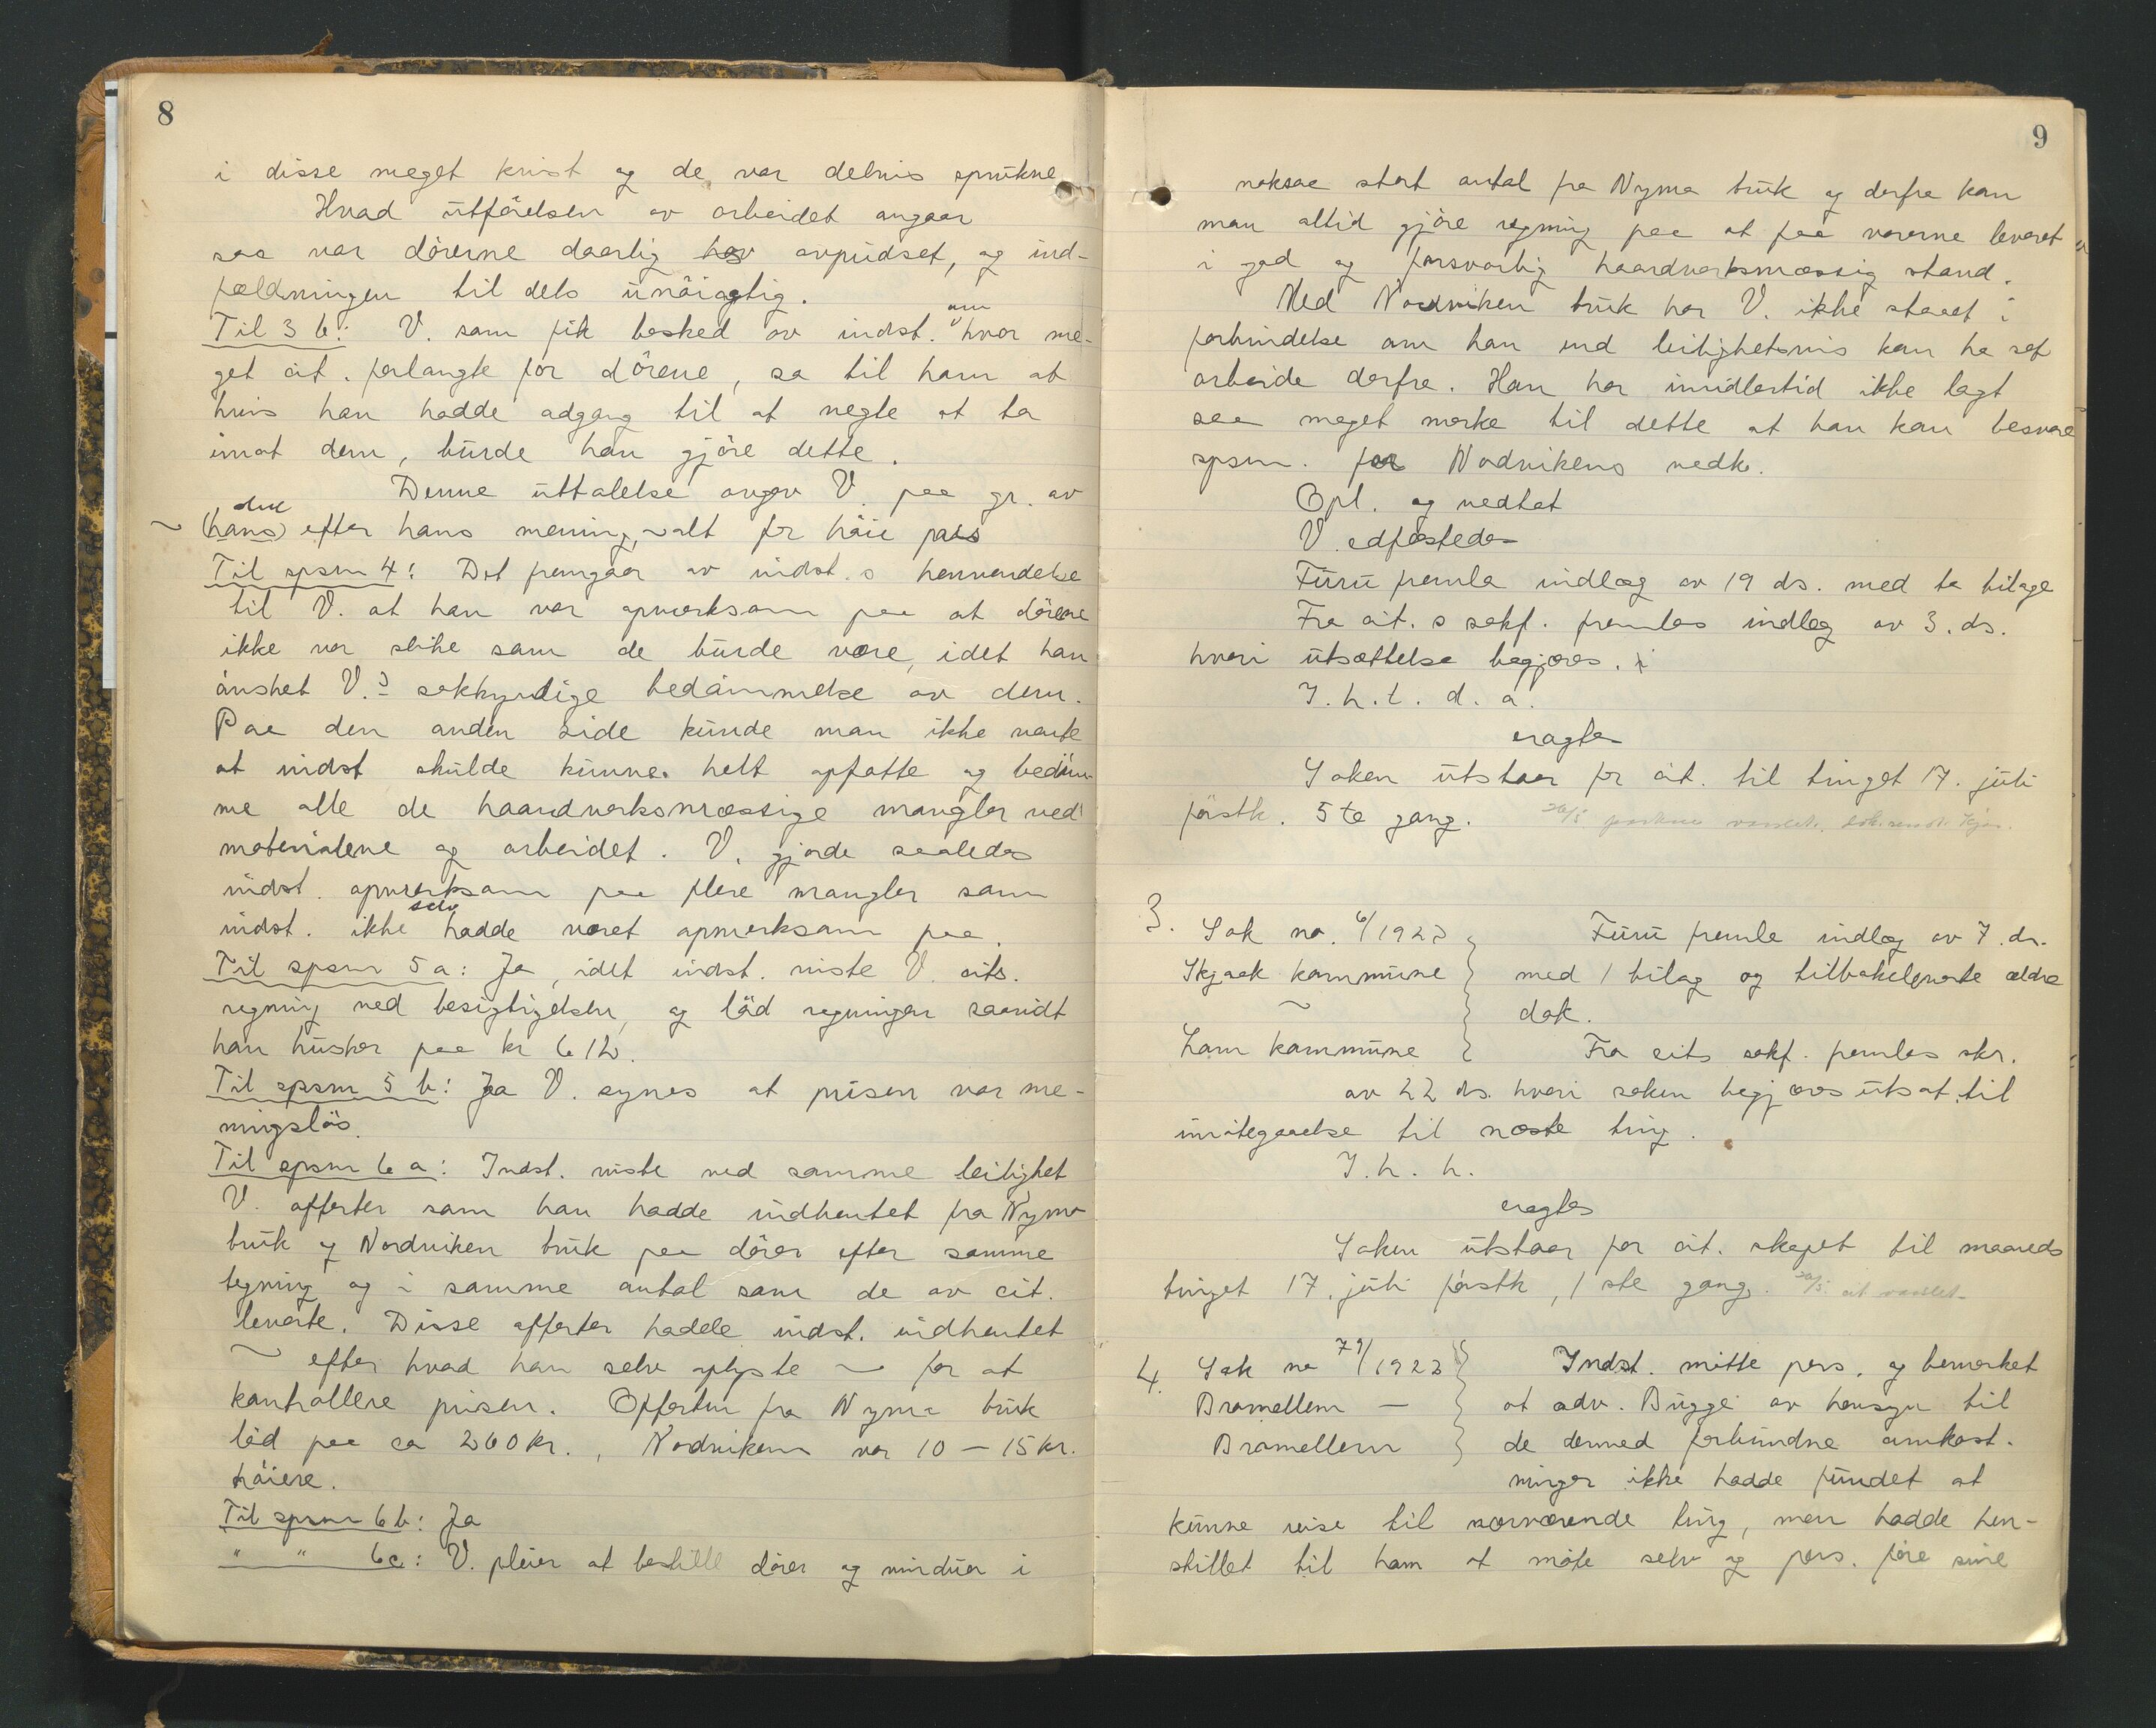 8
i disse meget krist og de var delvis sprukne
Hvad utførelsen av arbeidet angaar
saa var dørerne daarlig høv avpudset, og ind-
fældningen til dels unøiagtig.
Til 3 b: V. som fik besked av indst. om hvor me-
get cit. forlangte for dørene, sa til ham at
hvis han hadde adgang til at negte at ta
imot dem, burde han gjøre dette.
Denne uttalelse avgav V. paa gr. av
~ (hans) den efter hans mening ~ alt for høie pris
Til spsm 4: Det fremgaar av indst.s henvendelse
til V. at han var opmerksom paa at dørene
ikke var slike som de burde være, idet han
ønsket V.s sakkyndige bedømmelse av dem.
Paa den anden side kunde man ikke vente
at indst skulde kunne helt opfatte og bedøm-
me alle de haandverksmæssige mangler ved
materialene og arbeidet. V. gjorde saaledes
indst. opmerksom paa flere mangler som
indst. ikke selv hadde været opmerksom paa.
Til spsm 5 a: Ja, idet indst. viste V. cits.
regning ved besigtigelsen, og lød regningen saavidt
han husker paa kr 612.
Til spsm 5 b: Ja V. synes at prisen var me-
ningsløs.
Til spsm 6 a: Indst. viste ved samme leilighet
V. offerter som han hadde indhentet fra Nymo
bruk og Nordviken bruk paa dører efter samme
tegning og i samme antal som de av cit.
leverte. Disse offerter hadde indst. indhentet
~ efter hvad han selv oplyste ~ for at
kontrollere prisen. Offerten fra Nymo bruk
lød paa ca 260 kr., Nordvikens var 10 – 15 kr.
høiere.
Til spsm 6 b: Ja
" " 6 c: V. pleier at bestille dører og vinduer i
9
noksaa stort antal fra Nymo bruk og derfra kan
man altid gjøre regning paa at faa varerne levert
i god og forsvarlig haandverksmæssig stand.
Med Nordviken bruk har V. ikke staaet i
forbindelse om han end leilighetsvis kan ha set
arbeide derfra. Han har imidlertid ikke lagt
saa meget merke til dette at han kan besvare
spsm. for Nordvikens vedk.
Opl. og vedtat
V. edfæstedes
Furu fremla indlæg av 19 ds. med to bilage
Fra cit.s sakf. fremlaes indlæg av 3. ds.
hvori utsættelse begjæres.
I. h. t. d. a.
eragtes
Saken utstaar for cit. til tinget 17. juli
førstk. 5te gang. 26/5
3. Sak no. 6/1923 } Furu fremla indlæg av 7. ds.
Skjaak kommune } med 1 bilag og tilbakeleverte ældre
~ } dok.
Lom kommune } Fra cits sakf. fremlaes skr.
av 22 ds. hvori saken begjæres utsat til
imøtegaaelse til næste ting.
I. h. h.
eragtes
Saken utstaar for cit. skapet til maaneds
tinget 17. juli førstk, 1ste gang. 26/5. cit varslet
4. Sak no 79/1923 } Indst. møtte pers. og bemerket
Bramellem – } at adv. Bugge av hensyn til
Bramellem } de dermed forbundne omkost-
ninger ikke hadde fundet at
kunne reise til nærværende ting, men hadde hen-
stillet til ham at møte selv og pers. føre sine